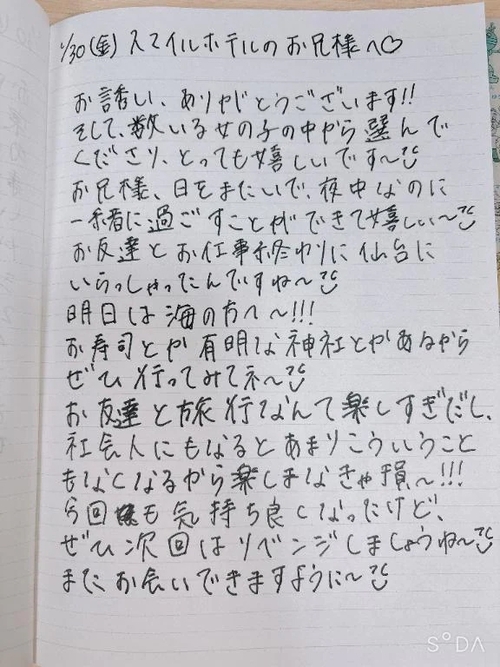 1/30(金) スマイルホテルのお兄様へ♡
お誘い、ありがとうございます!!
そして、数いる女の子の中から選んで
くださり、とっても嬉しいです〜
お兄様、日をまたいで、夜中なのに
一緒に過ごすことができて嬉しい〜
お友達とお仕事終わりに仙台に
いらっしゃったんですね〜
明日は海の方へ〜!!!
お寿司とか有明な神社とかあるから
ぜひ行ってみてネ〜
お友達と旅行なんて楽しすぎだし、
社会人にもなるとあまりこういうこと
もなくなるから楽しまなきゃ損〜!!!
今回も気持ち良くなったけど、
ぜひ次回はリベンジしましょうね〜
またお会いできますように〜
SODA